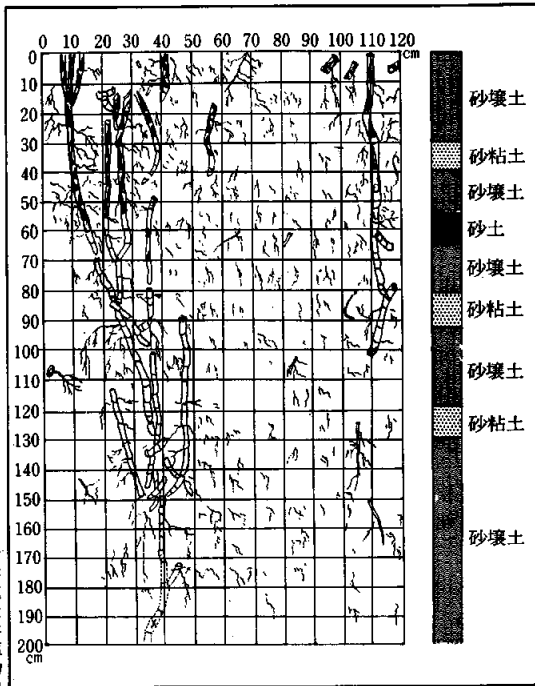 0 10 20 30 40 50 60 70 80 90 100 110 120
cm
0
10
20
30
40
50
60
70
80
90
100
110
120
130
140
150
160
170
180
190
200
cm
砂壤土
砂粘土
砂壤土
砂土
砂壤土
砂粘土
砂壤土
砂粘土
砂壤土